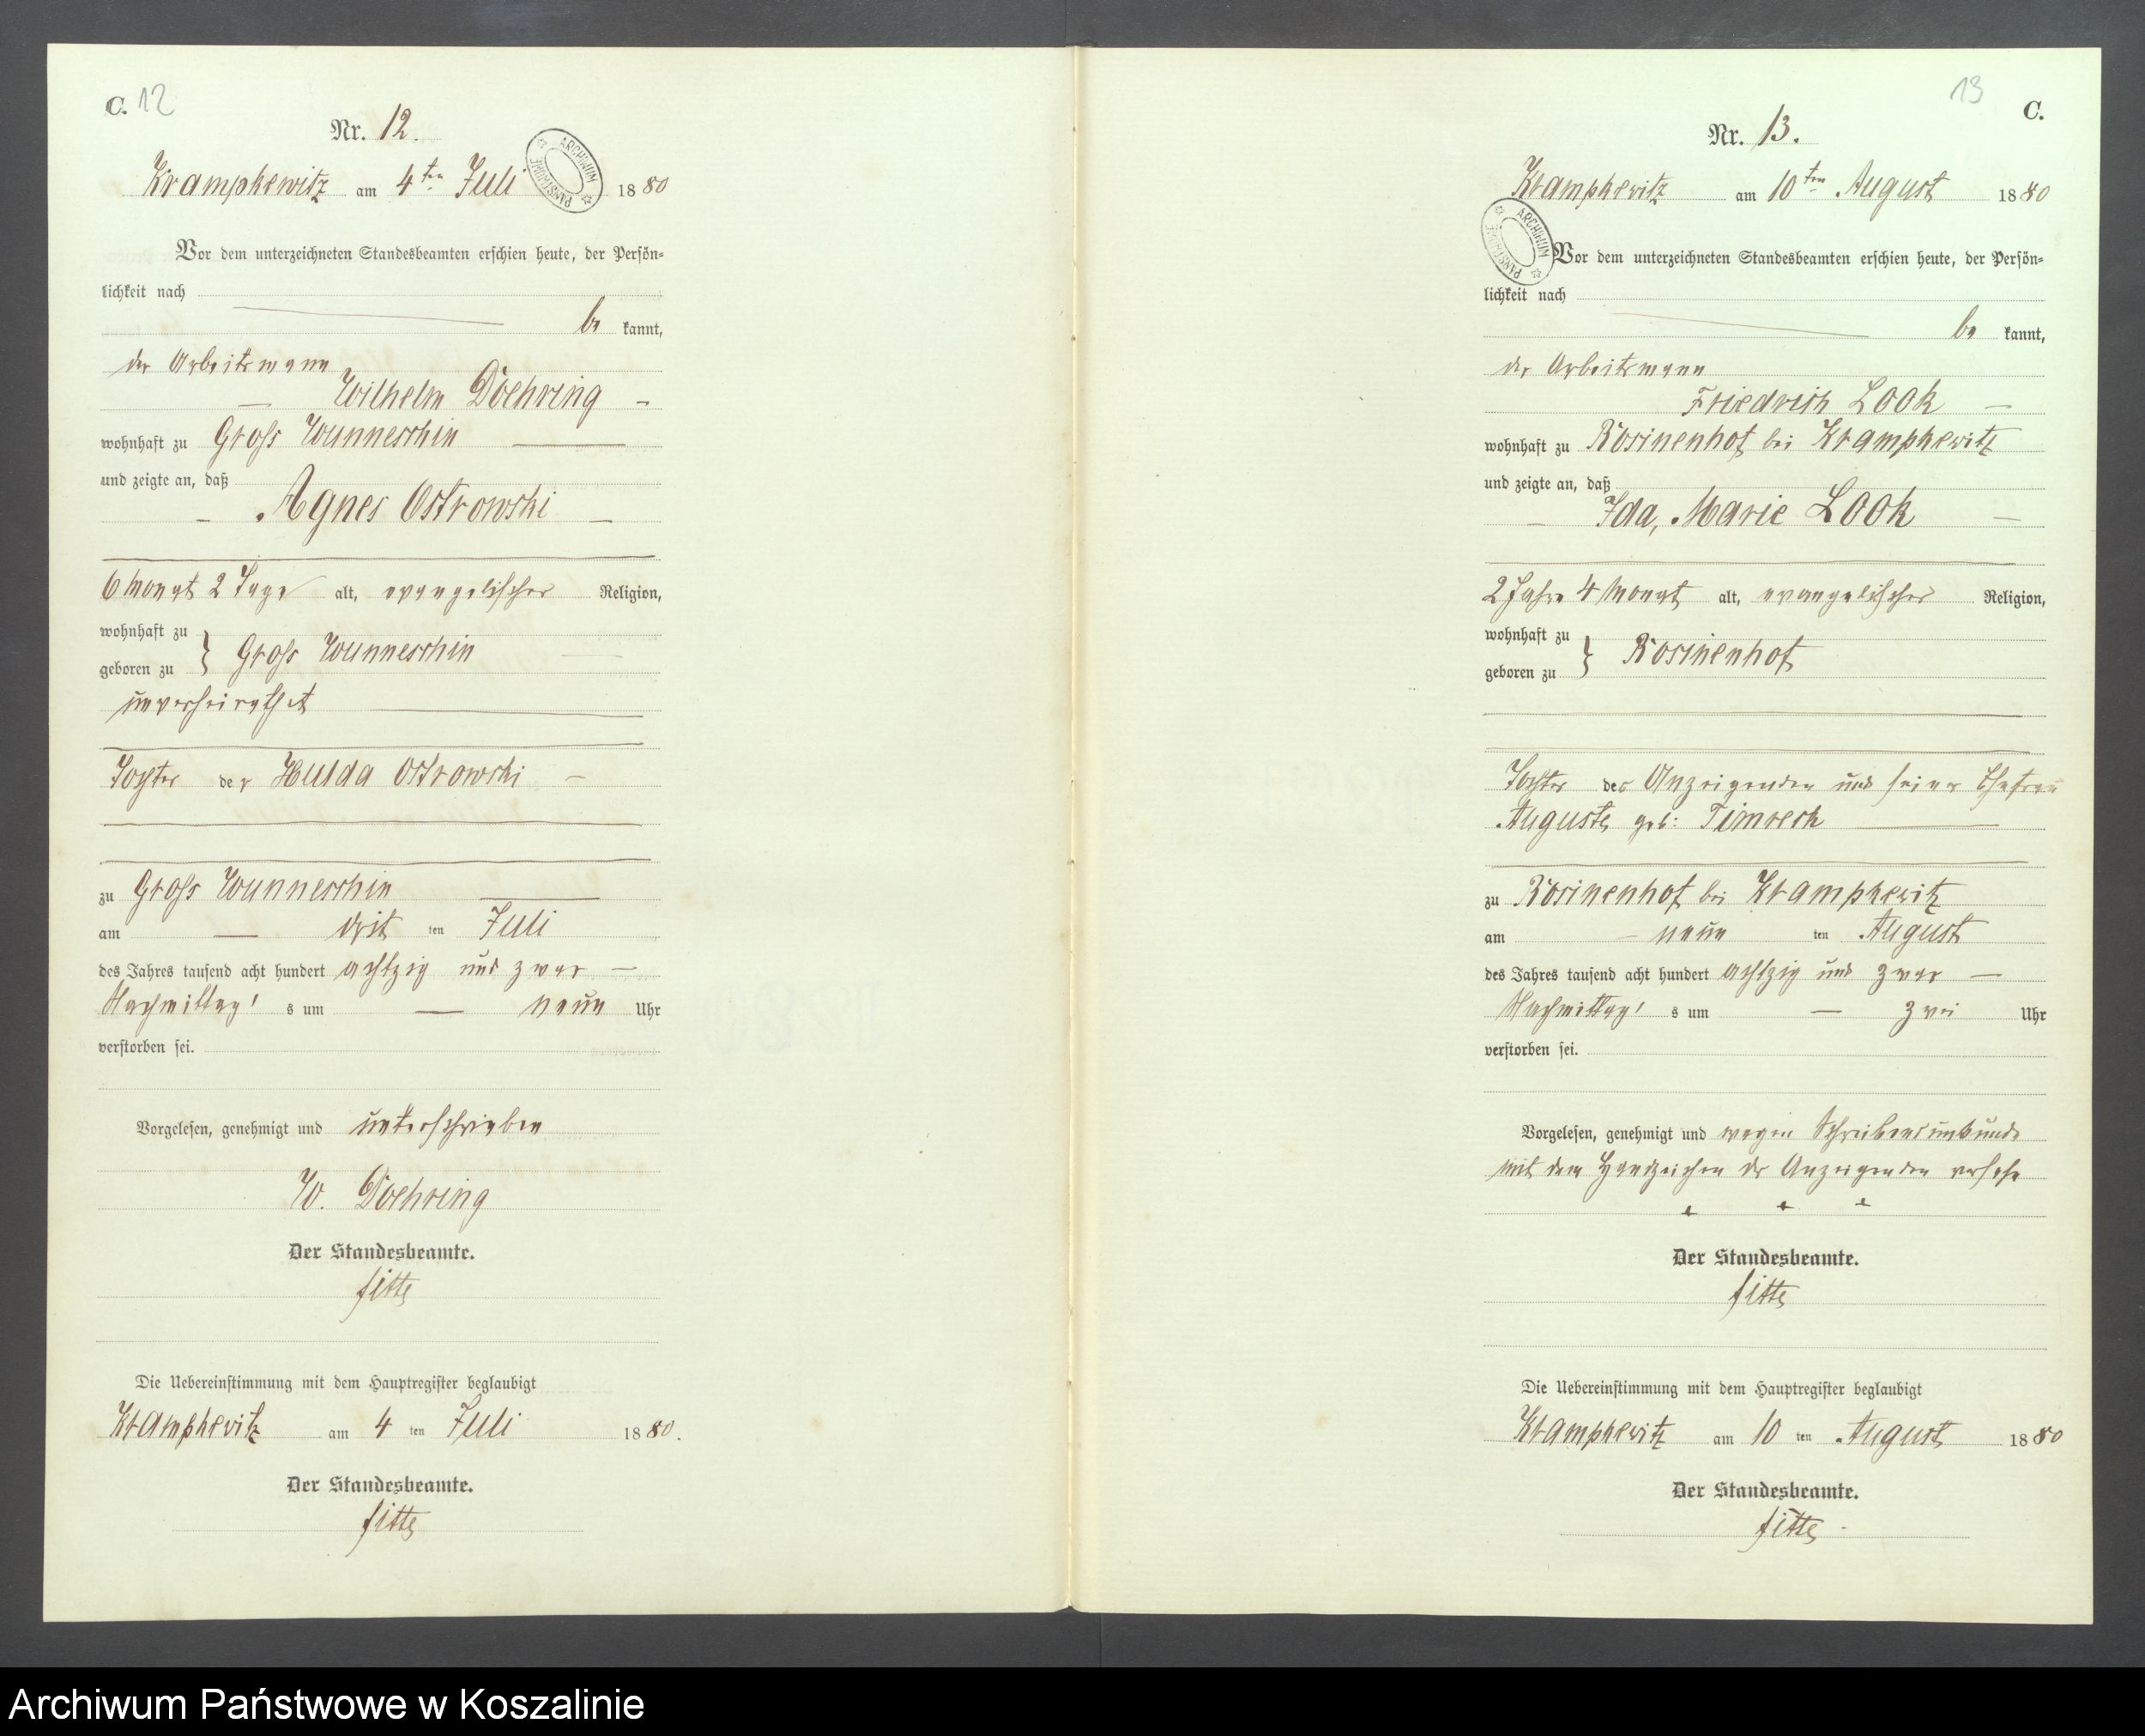 C. 12
Nr. 12.
ARCHIWUM PAŃSTWOWE
Krampkewitz am 4ten Juli 1880
Vor dem unterzeichneten Standesbeamten erschien heute, der Persön-
lichkeit nach
be kannt,
der Arbeitsmann
Wilhelm Doehring
wohnhaft zu Gross Wunneschin
und zeigte an, daß
Agnes Ostrowski
6 Monat 2 Tage alt, evangelischer Religion,
wohnhaft zu
geboren zu } Gross Wunneschin
unverheirathet
Tochter der Hulda Ostrowski
zu Gross Wunneschin
am drit ten Juli
des Jahres tausend acht hundert achtzig und zwar
Nachmittag's um neun Uhr
verstorben sei.
Vorgelesen, genehmigt und unterschrieben
W. Doehring
Der Standesbeamte.
Die Uebereinstimmung mit dem Hauptregister beglaubigt
Krampkewitz am 4 ten Juli 1880.
Der Standesbeamte.
13 C.
Nr. 13.
Krampkewitz am 10ten August 1880
ARCHIWUM PAŃSTWOWE
Vor dem unterzeichneten Standesbeamten erschien heute, der Persön-
lichkeit nach
be kannt,
der Arbeitsmann
Friedrich Look
wohnhaft zu Rosinenhof bei Krampkewitz
und zeigte an, daß
Ida, Marie Look
2 Jahre 4 Monat alt, evangelischer Religion,
wohnhaft zu
geboren zu } Rosinenhof
Tochter des Anzeigenden und seiner Ehefrau
Auguste geb: Timreck
zu Rosinenhof bei Krampkewitz
am neun ten August
des Jahres tausend acht hundert achtzig und zwar
Nachmittag's um zwei Uhr
verstorben sei.
Vorgelesen, genehmigt und wegen Schreibensunkunde
mit dem Handzeichen des Anzeigenden versehn
+ + +
Der Standesbeamte.
Die Uebereinstimmung mit dem Hauptregister beglaubigt
Krampkewitz am 10 ten August 1880
Der Standesbeamte.
Archiwum Państwowe w Koszalinie